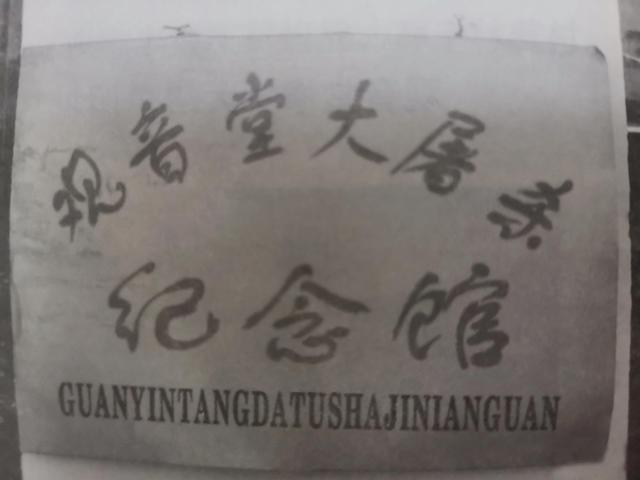 观音堂大屠杀
纪念馆
GUANYINTANGDATUSHAJINIANGUAN